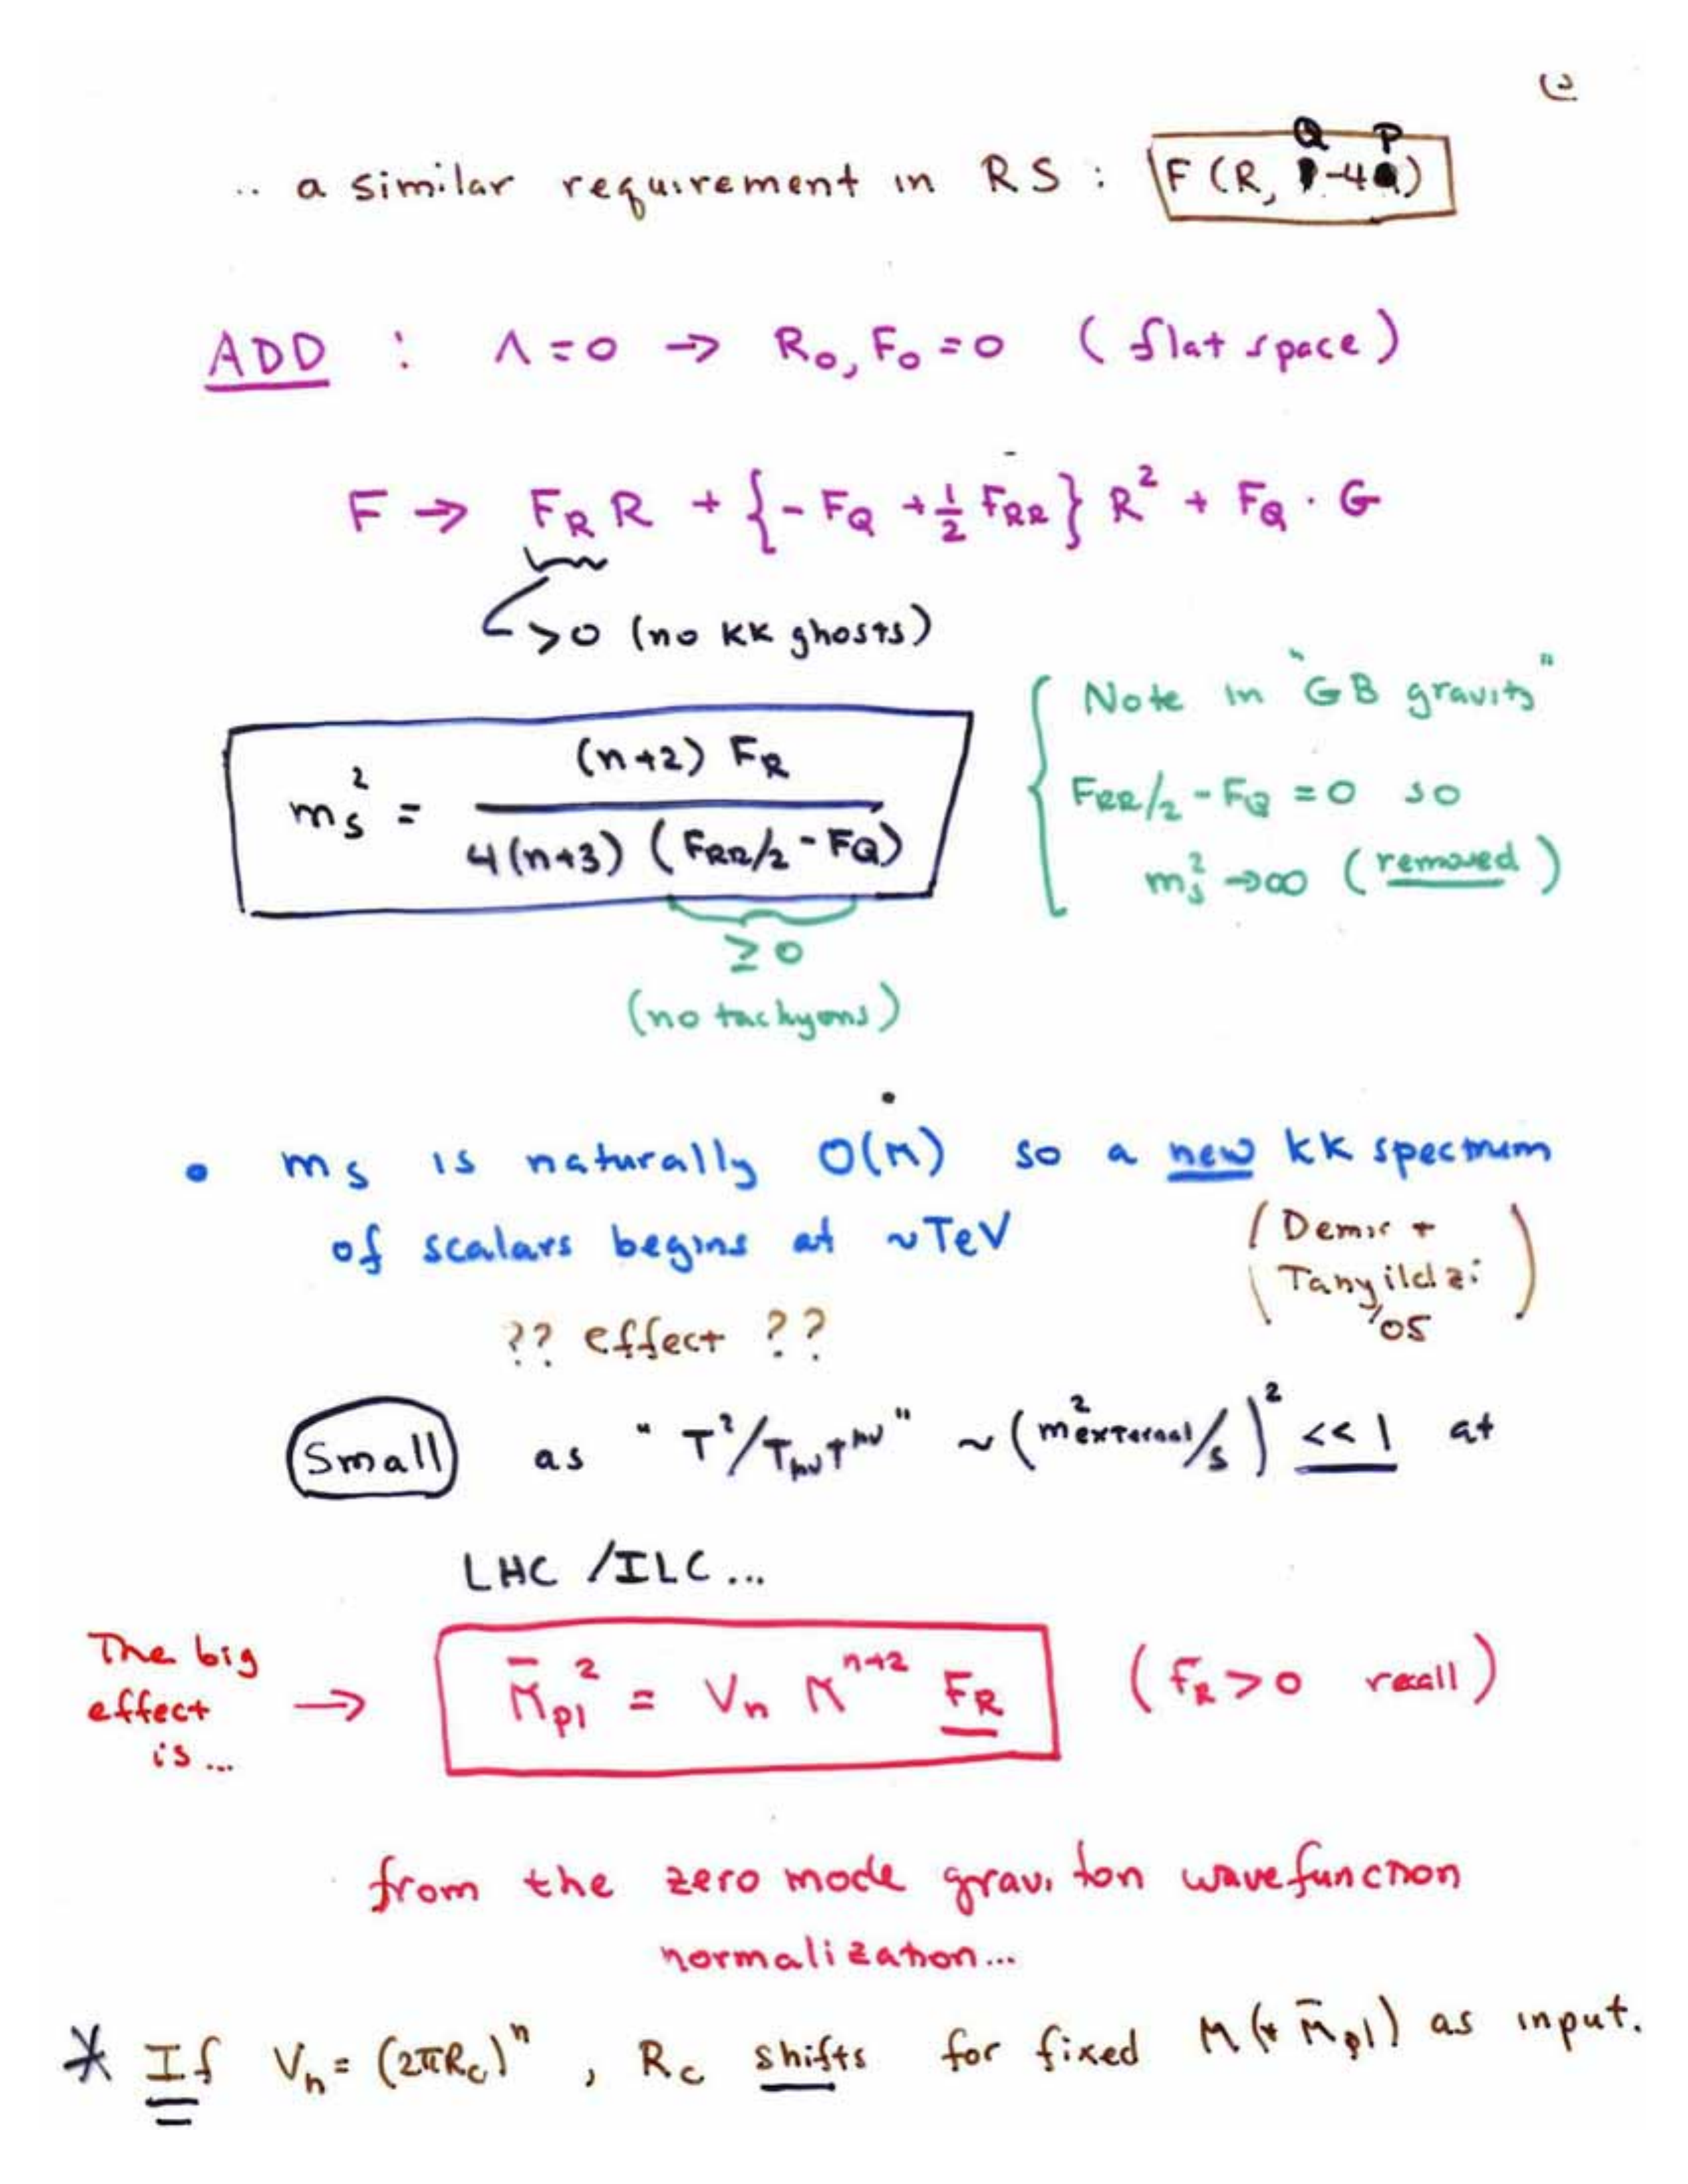 .. a similar requirement in RS : F (R, Q-4P)
ADD : Λ = 0 → R₀, F₀ = 0 (flat space)
F → F_R R + {- F_Q + ½ F_RR} R² + F_Q · G
>0 (no KK ghosts)
m_s² = (n+2) F_R / 4(n+3) (F_RR/2 - F_Q)
≥ 0
(no tachyons)
Note in "GB gravity"
F_RR/2 - F_Q = 0 so
m_s² → ∞ (removed)
• m_s is naturally O(M) so a new KK spectrum
of scalars begins at ~TeV
(Demir +
Tanyildizi
'05)
?? effect ??
Small as "T²/T_μν T^μν" ~ (m²external/s)² << 1 at
LHC /ILC...
The big
effect
is...
→ M̄_pl² = V_n M^{n+2} F_R (F_R > 0 recall)
from the zero mode graviton wavefunction
normalization...
* If V_n = (2πR_c)^n , R_c shifts for fixed M (+ M̄_pl) as input.